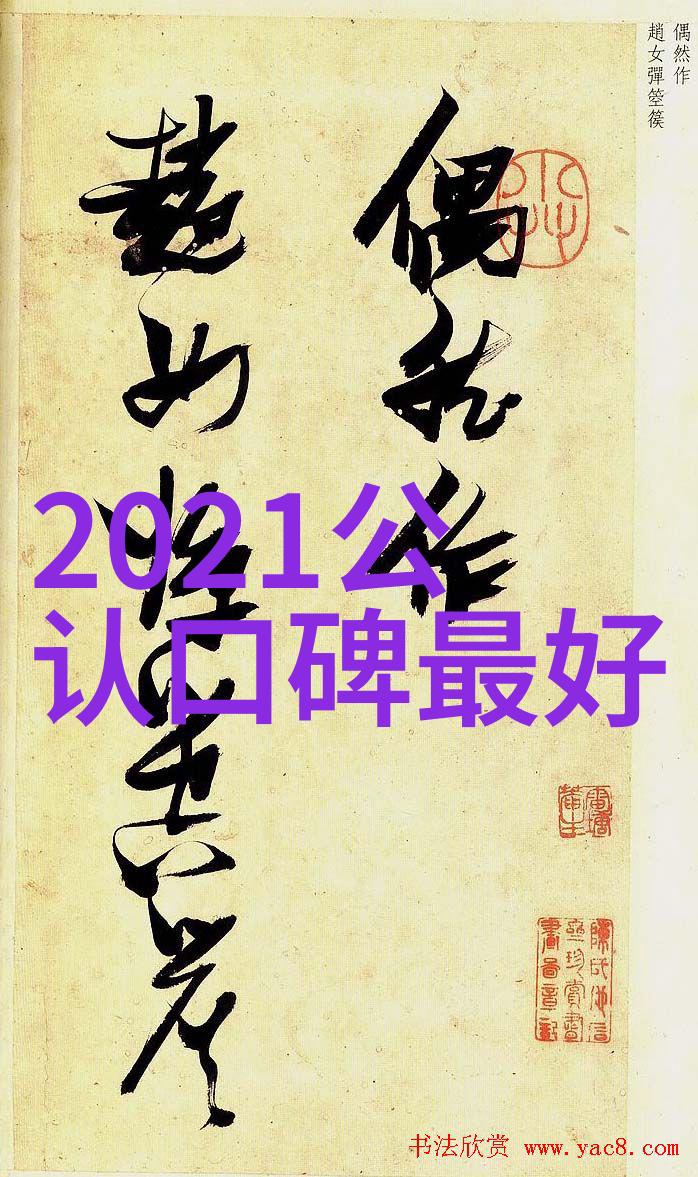 偶然作
趙女彈箜篌
偶然作
趙女彈箜篌
2021公
认口碑最好
雷塘
庵主
书法欣赏 www.yac8.com